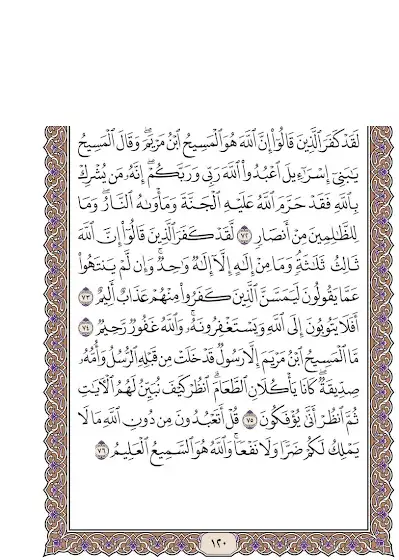 لَقَدْ كَفَرَ ٱلَّذِينَ قَالُوٓا۟ إِنَّ ٱللَّهَ هُوَ ٱلْمَسِيحُ ٱبْنُ مَرْيَمَ ۖ وَقَالَ ٱلْمَسِيحُ
يَـٰبَنِىٓ إِسْرَٰٓءِيلَ ٱعْبُدُوا۟ ٱللَّهَ رَبِّى وَرَبَّكُمْ ۖ إِنَّهُۥ مَن يُشْرِكْ
بِٱللَّهِ فَقَدْ حَرَّمَ ٱللَّهُ عَلَيْهِ ٱلْجَنَّةَ وَمَأْوَىٰهُ ٱلنَّارُ ۖ وَمَا
لِلظَّـٰلِمِينَ مِنْ أَنصَارٍ ٧٢ لَّقَدْ كَفَرَ ٱلَّذِينَ قَالُوٓا۟ إِنَّ ٱللَّهَ
ثَالِثُ ثَلَـٰثَةٍ ۘ وَمَا مِنْ إِلَـٰهٍ إِلَّآ إِلَـٰهٌ وَٰحِدٌ ۚ وَإِن لَّمْ يَنتَهُوا۟
عَمَّا يَقُولُونَ لَيَمَسَّنَّ ٱلَّذِينَ كَفَرُوا۟ مِنْهُمْ عَذَابٌ أَلِيمٌ ٧٣
أَفَلَا يَتُوبُونَ إِلَى ٱللَّهِ وَيَسْتَغْفِرُونَهُۥ ۚ وَٱللَّهُ غَفُورٌ رَّحِيمٌ ٧٤
مَّا ٱلْمَسِيحُ ٱبْنُ مَرْيَمَ إِلَّا رَسُولٌ قَدْ خَلَتْ مِن قَبْلِهِ ٱلرُّسُلُ وَأُمُّهُۥ
صِدِّيقَةٌ ۖ كَانَا يَأْكُلَانِ ٱلطَّعَامَ ۗ ٱنظُرْ كَيْفَ نُبَيِّنُ لَهُمُ ٱلْـَٔايَـٰتِ
ثُمَّ ٱنظُرْ أَنَّىٰ يُؤْفَكُونَ ٧٥ قُلْ أَتَعْبُدُونَ مِن دُونِ ٱللَّهِ مَا لَا
يَمْلِكُ لَكُمْ ضَرًّا وَلَا نَفْعًا ۚ وَٱللَّهُ هُوَ ٱلسَّمِيعُ ٱلْعَلِيمُ ٧٦
١٢٠